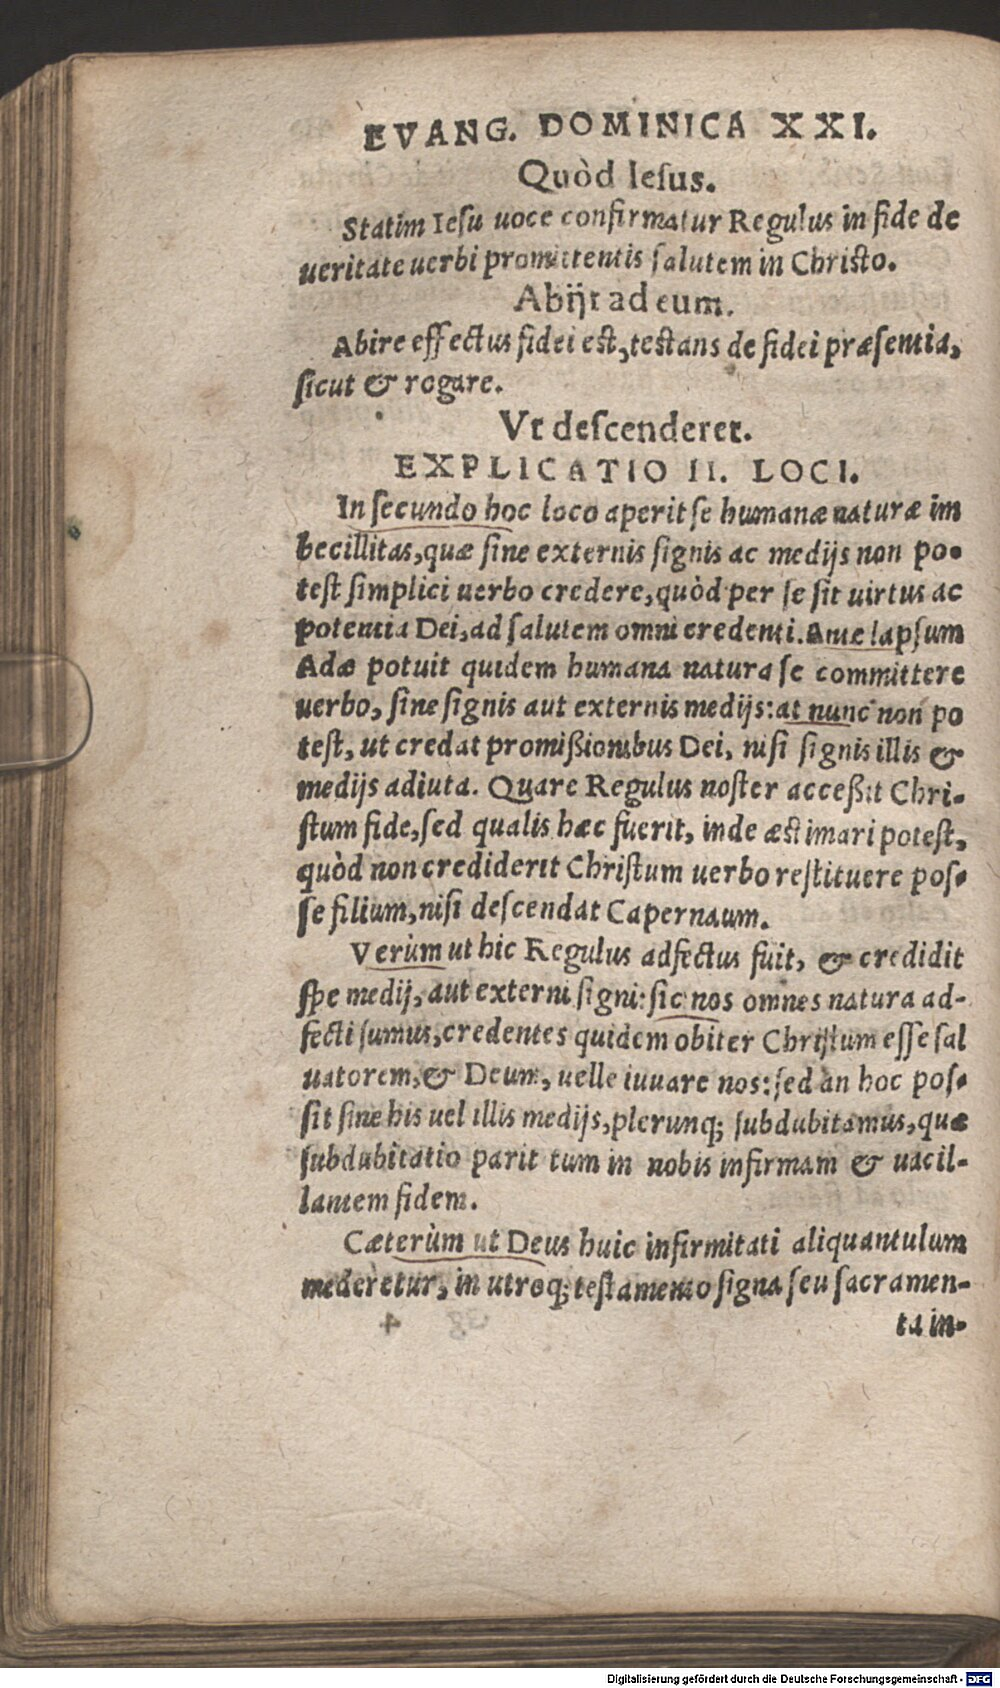 EVANG. DOMINICA XXI.
Quòd Iesus.
Statim Iesu uoce confirmatur Regulus in fide de
ueritate uerbi promittentis salutem in Christo.
Abijt ad eum.
Abire effectus fidei est, testans de fidei præsentia,
sicut & rogare.
Vt descenderet.
EXPLICATIO II. LOCI.
In secundo hoc loco aperit se humanæ naturæ im
becillitas, quæ sine externis signis ac medijs non po-
test simplici uerbo credere, quòd per se sit uirtus ac
potentia Dei, ad salutem omni credenti. Ante lapsum
Adæ potuit quidem humana natura se committere
uerbo, sine signis aut externis medijs: at nunc non po
test, ut credat promißionibus Dei, nisi signis illis &
medijs adiuta. Quare Regulus noster acceßit Chri-
stum fide, sed qualis hæc fuerit, inde æstimari potest,
quòd non crediderit Christum uerbo restituere pos-
se filium, nisi descendat Capernaum.
Verùm ut hic Regulus adfectus fuit, & credidit
spe medij, aut externi signi: sic nos omnes natura ad-
fecti sumus, credentes quidem obiter Christum esse sal
uatorem, & Deum, uelle iuuare nos: sed an hoc pos-
sit sine his uel illis medijs, plerunq; subdubitamus, quæ
subdubitatio parit tum in nobis infirmam & uacil-
lantem fidem.
Cæterùm ut Deus huic infirmitati aliquantulum
mederetur, in utroq; testamento signa seu sacramen-
ta in-
Digitalisierung gefördert durch die Deutsche Forschungsgemeinschaft - DFG